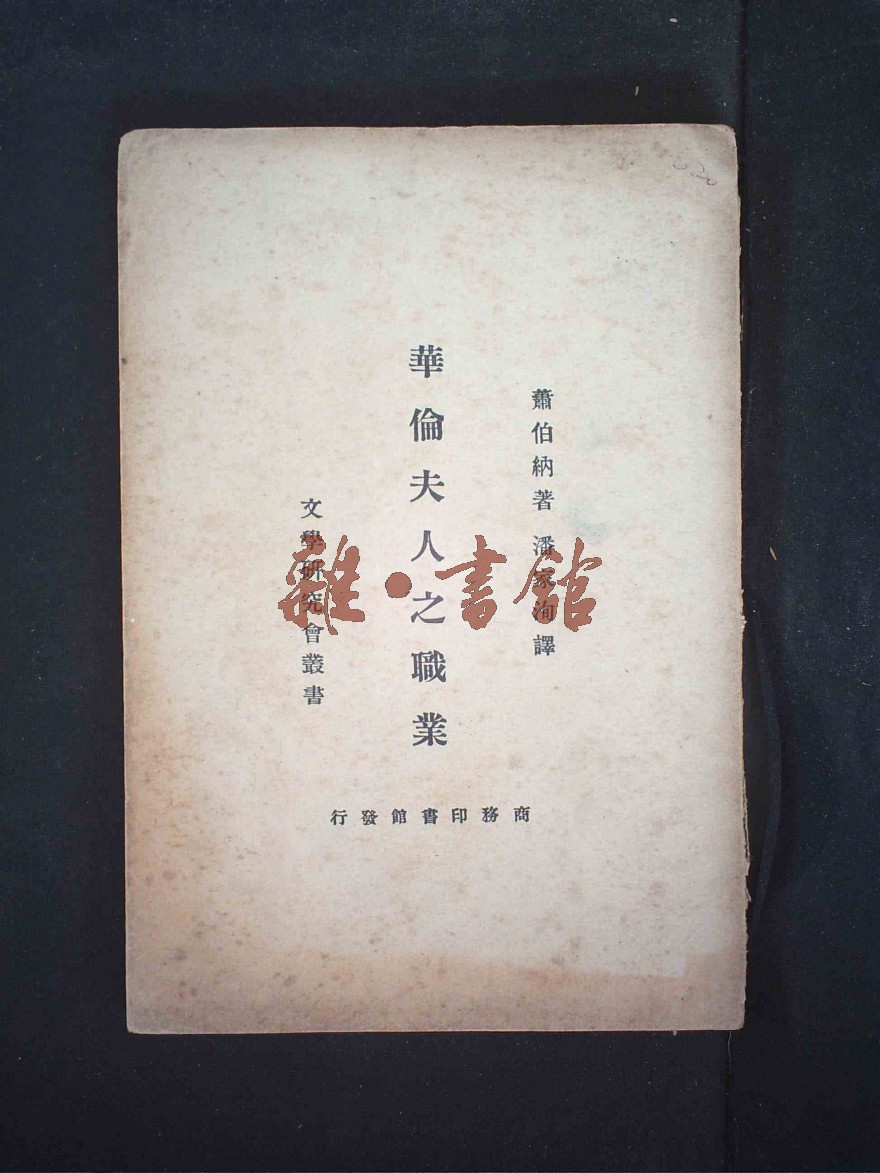 蕭伯納著 潘家洵譯
華倫夫人之職業
文學研究會叢書
商務印書館發行
雜·書館